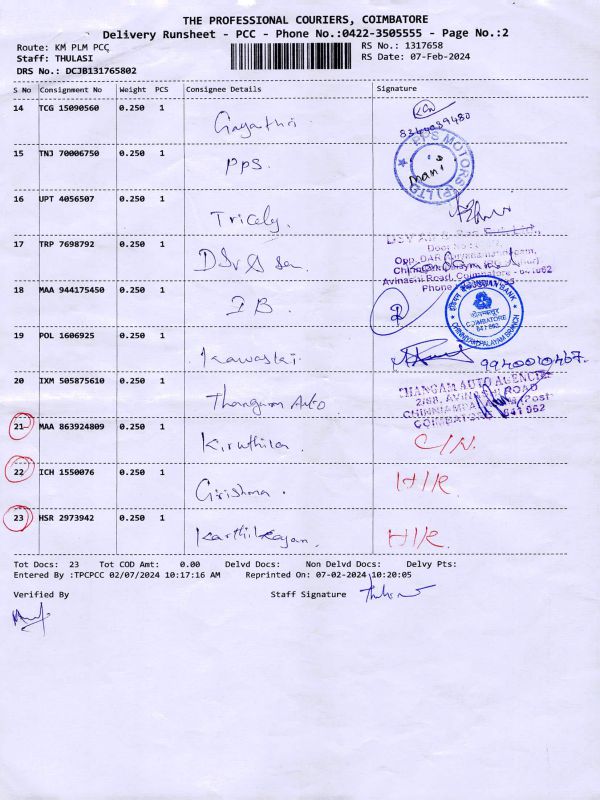 THE PROFESSIONAL COURIERS, COIMBATORE
Delivery Runsheet - PCC - Phone No.:0422-3505555 - Page No.:2
Route: KM PLM PCC
RS No.: 1317658
Staff: THULASI
RS Date: 07-Feb-2024
DRS No.: DCJB131765802
S No Consignment No Weight PCS Consignee Details Signature
14 TCG 15090560 0.250 1 Gayathri
8344039480
15 TNJ 70006750 0.250 1 PPS
PPS MOTORS (P) LTD
mani
16 UPT 4056507 0.250 1 Tricely.
17 TRP 7698792 0.250 1
Avinashi Road, Coimbatore - 641062
Phone
18 MAA 944175450 0.250 1 IB
INDIAN BANK
COIMBATORE
641 062
CHINNIYAMPALAYAM BRANCH
19 POL 1606925 0.250 1
9940010467
20 IXM 505875610 0.250 1 Thangam Auto
THANGAM AUTO AGENCIES
2/88, AVINASHI ROAD
CHINNIAMPALAYAM (Post)
COIMBATORE - 641 062
21 MAA 863924809 0.250 1 Kiruthika
C/N.
22 ICH 1550076 0.250 1 Girishma.
H/R.
23 HSR 2973942 0.250 1 Karthikeyan.
H/R.
Tot Docs: 23 Tot COD Amt: 0.00 Delvd Docs: Non Delvd Docs: Delvy Pts:
Entered By :TPCPCC 02/07/2024 10:17:16 AM Reprinted On: 07-02-2024 10:20:05
Verified By Staff Signature